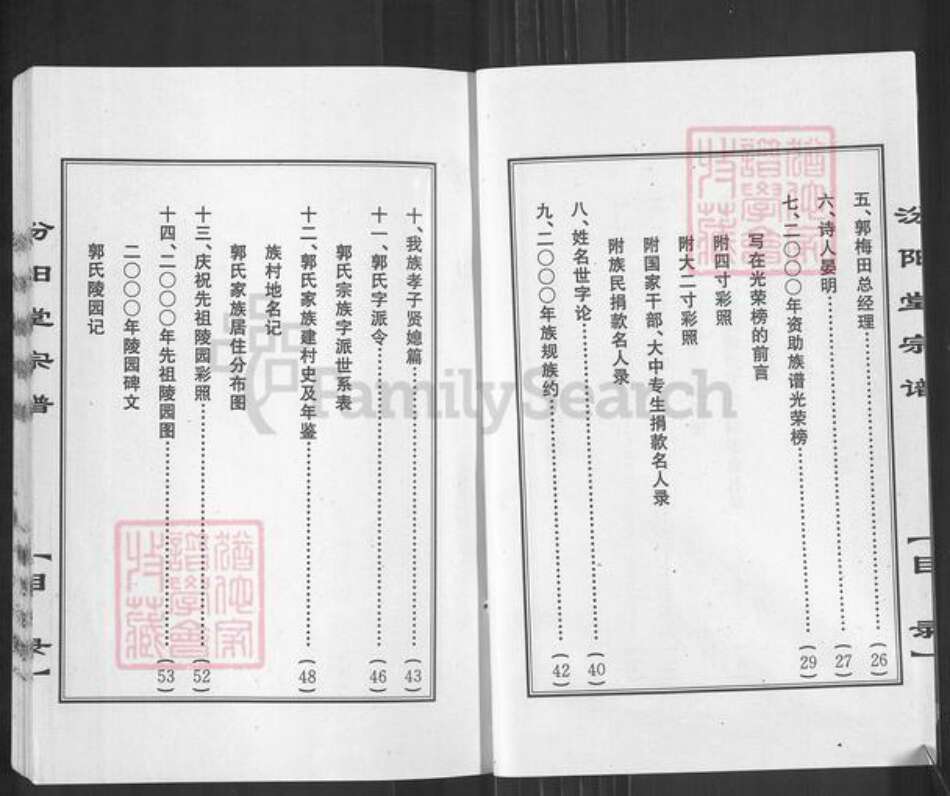 汾阳堂宗谱
【目录】
五、郭梅田总经理……(26)
六、诗人晏明……(27)
七、二〇〇〇年资助族谱光荣榜……(29)
写在光荣榜的前言
附四寸彩照
附大二寸彩照
附国家干部、大中专生捐款名人录
附族民捐款名人录
八、姓名世字论……(40)
九、二〇〇〇年族规族约……(42)
十、我族孝子贤媳篇……(43)
十一、郭氏字派令……(46)
郭氏宗族字派世系表
十二、郭氏家族建村史及年鉴……(48)
族村地名记
郭氏家族居住分布图
十三、庆祝先祖陵园彩照……(52)
十四、二〇〇〇年先祖陵园图……(53)
二〇〇〇年陵园碑文
郭氏陵园记
汾阳堂宗谱
【目录】
FamilySearch